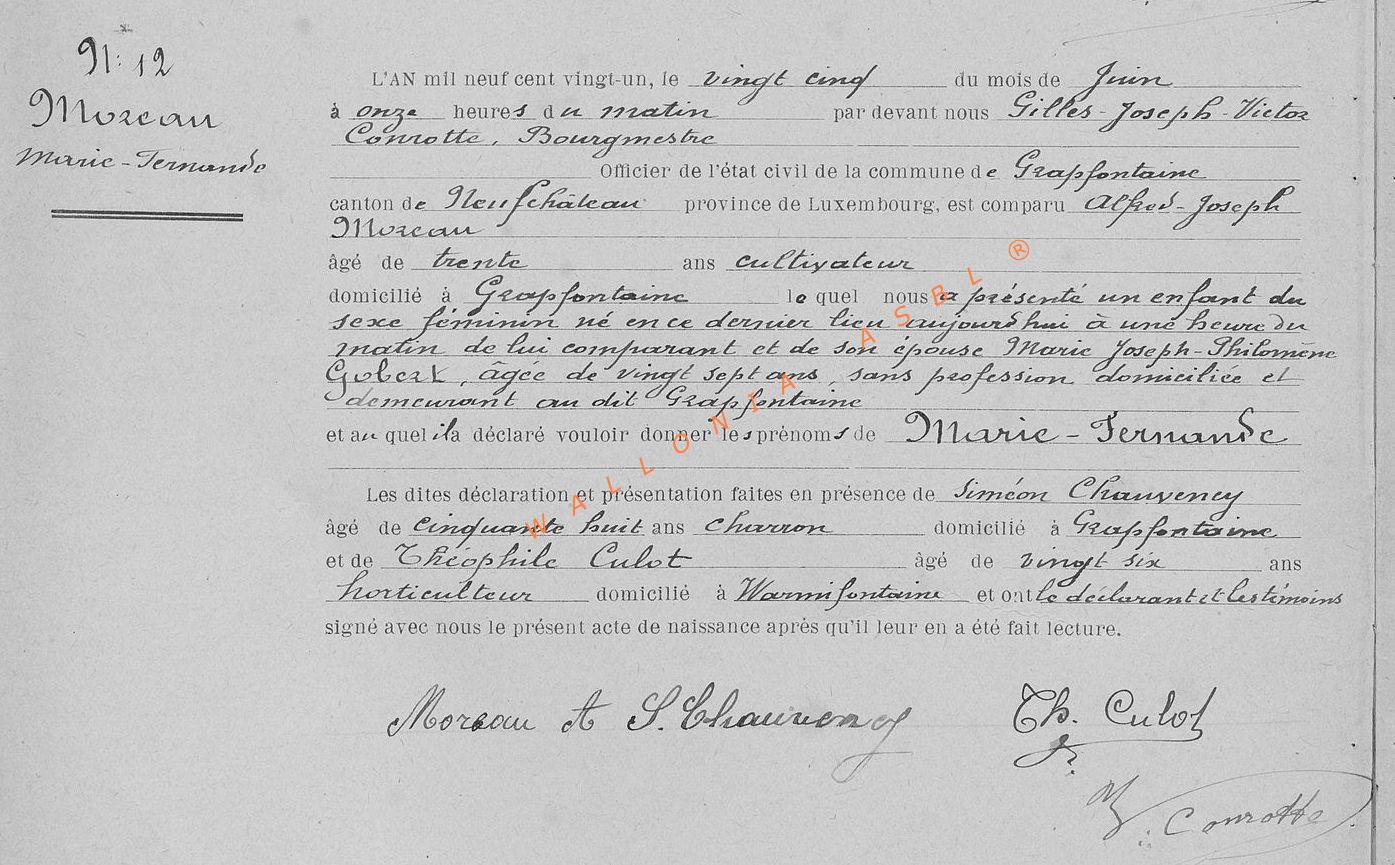 N: 12
Moreau
Marie-Fernande
L'AN mil neuf cent vingt-un, le vingt cinq du mois de Juin
à onze heures du matin par devant nous Gilles-Joseph-Victor
Conrotte, Bourgmestre
Officier de l'état civil de la commune de Grapfontaine
canton de Neufchâteau province de Luxembourg, est comparu Alfred-Joseph
Moreau
âgé de trente ans cultivateur
domicilié à Grapfontaine lequel nous a présenté un enfant du
sexe féminin né en ce dernier lieu aujourd'hui à une heure du
matin de lui comparant et de son épouse Marie Joseph-Philomène
Gobert, âgée de vingt sept ans, sans profession domiciliée et
demeurant au dit Grapfontaine
et auquel il a déclaré vouloir donner les prénoms de Marie-Fernande
Les dites déclaration et présentation faites en présence de Siméon Chauvency
âgé de cinquante huit ans charron domicilié à Grapfontaine
et de Théophile Culot âgé de vingt six ans
horticulteur domicilié à Warmifontaine et ont le déclarant et les témoins
signé avec nous le présent acte de naissance après qu'il leur en a été fait lecture.
WALLONIA ASBL ®
Moreau A S. Chauvency Th. Culot
Conrotte